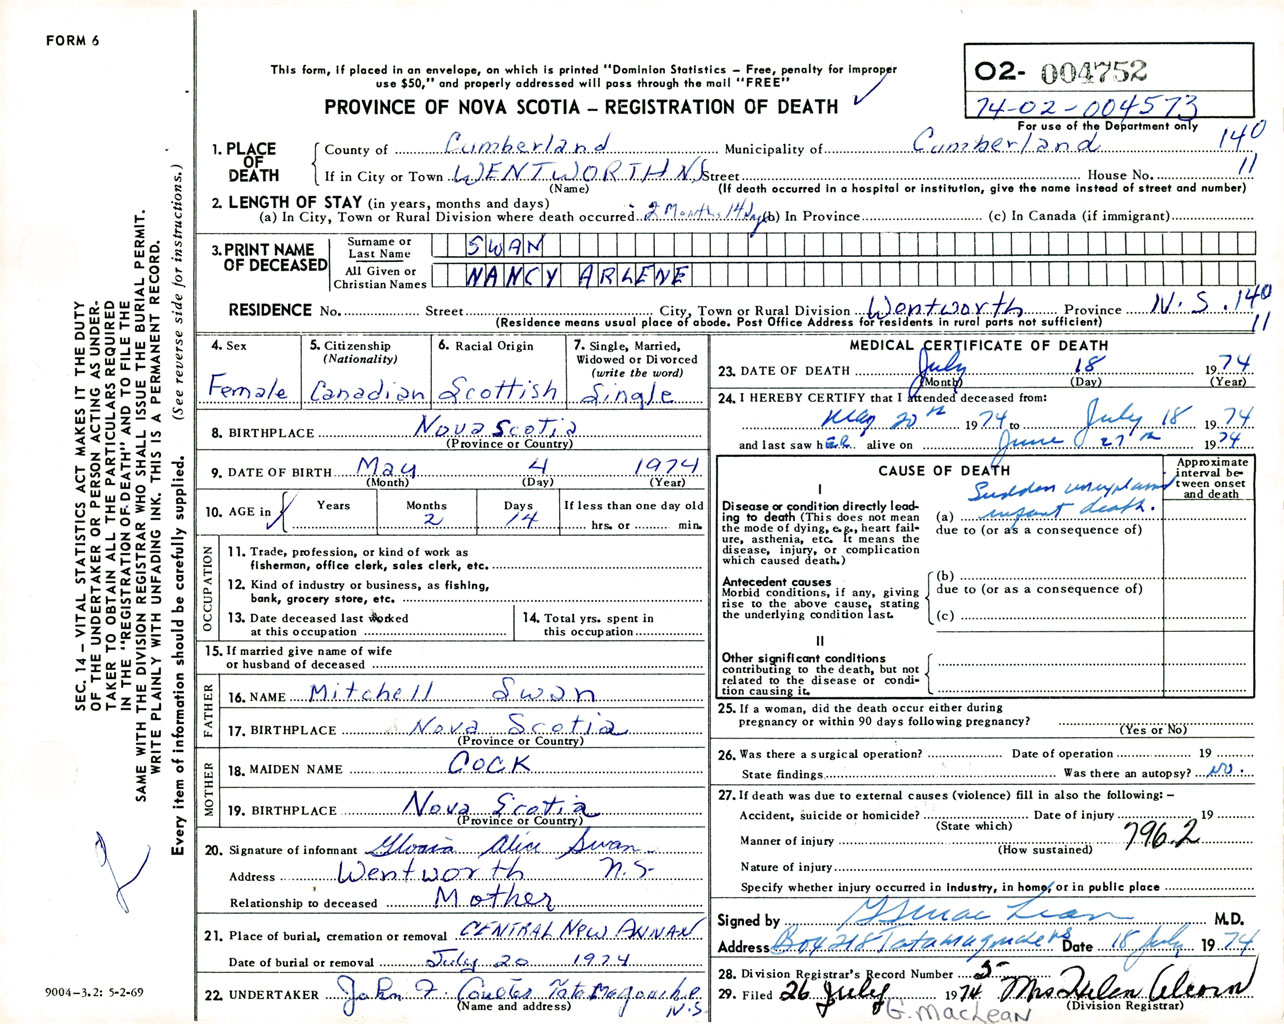 FORM 6
This form, if placed in an envelope, on which is printed "Dominion Statistics – Free, penalty for improper
use $50," and properly addressed will pass through the mail "FREE"
PROVINCE OF NOVA SCOTIA – REGISTRATION OF DEATH ✓
02- 004752
74-02-004573
For use of the Department only
1. PLACE OF DEATH
County of Cumberland Municipality of Cumberland 140
If in City or Town WENTWORTH NS Street House No. 11
(Name) (If death occurred in a hospital or institution, give the name instead of street and number)
2. LENGTH OF STAY (in years, months and days)
(a) In City, Town or Rural Division where death occurred 2 Months 14 days (b) In Province (c) In Canada (if immigrant)
3. PRINT NAME OF DECEASED
Surname or Last Name SWAN
All Given or Christian Names NANCY ARLENE
RESIDENCE No. Street City, Town or Rural Division Wentworth Province N.S. 140
(Residence means usual place of abode. Post Office Address for residents in rural parts not sufficient) 11
4. Sex
Female
5. Citizenship
(Nationality)
Canadian
6. Racial Origin
Scottish
7. Single, Married,
Widowed or Divorced
(write the word)
Single
8. BIRTHPLACE Nova Scotia
(Province or Country)
9. DATE OF BIRTH May 4 1974
(Month) (Day) (Year)
10. AGE in ✓ Years Months Days If less than one day old
2 14 hrs. or min.
OCCUPATION
11. Trade, profession, or kind of work as
fisherman, office clerk, sales clerk, etc.
12. Kind of industry or business, as fishing,
bank, grocery store, etc.
13. Date deceased last worked
at this occupation
14. Total yrs. spent in
this occupation
15. If married give name of wife
or husband of deceased
FATHER
16. NAME Mitchell Swan
17. BIRTHPLACE Nova Scotia
(Province or Country)
MOTHER
18. MAIDEN NAME COCK
19. BIRTHPLACE Nova Scotia
(Province or Country)
20. Signature of informant Gloria Alice Swan
Address Wentworth N.S.
Relationship to deceased Mother
21. Place of burial, cremation or removal CENTRAL NEW ANNAN
Date of burial or removal July 20 1974
22. UNDERTAKER John F. Coulter Tatamagouche
(Name and address) N.S.
MEDICAL CERTIFICATE OF DEATH
23. DATE OF DEATH July 18 1974
(Month) (Day) (Year)
24. I HEREBY CERTIFY that I attended deceased from:
May 20th 1974 to July 18 1974
and last saw hER alive on June 27th 1974
CAUSE OF DEATH
Approximate
interval be-
tween onset
and death
I
Disease or condition directly lead-
ing to death (This does not mean
the mode of dying, e.g., heart fail-
ure, asthenia, etc. It means the
disease, injury, or complication
which caused death.)
Sudden unexplained
(a) infant death.
due to (or as a consequence of)
Antecedent causes
Morbid conditions, if any, giving
rise to the above cause, stating
the underlying condition last.
(b)
due to (or as a consequence of)
(c)
II
Other significant conditions
contributing to the death, but not
related to the disease or condi-
tion causing it.
25. If a woman, did the death occur either during
pregnancy or within 90 days following pregnancy?
(Yes or No)
26. Was there a surgical operation? Date of operation 19
State findings Was there an autopsy? NO.
27. If death was due to external causes (violence) fill in also the following: –
Accident, suicide or homicide? Date of injury 19
(State which)
Manner of injury 796.2
(How sustained)
Nature of injury
Specify whether injury occurred in industry, in home, or in public place
Signed by MacLean M.D.
Address Box 218 Tatamagouche Date 18 July 1974
28. Division Registrar's Record Number 5
29. Filed 26 July 1974 Mrs Helen Alcorn
(Division Registrar)
G. MacLean
SEC. 14 – VITAL STATISTICS ACT MAKES IT THE DUTY
OF THE UNDERTAKER OR PERSON ACTING AS UNDER-
TAKER TO OBTAIN ALL THE PARTICULARS REQUIRED
IN THE "REGISTRATION OF DEATH" AND TO FILE THE
SAME WITH THE DIVISION REGISTRAR WHO SHALL ISSUE THE BURIAL PERMIT.
WRITE PLAINLY WITH UNFADING INK. THIS IS A PERMANENT RECORD.
Every item of information should be carefully supplied. (See reverse side for instructions.)
9004-3.2: 5-2-69